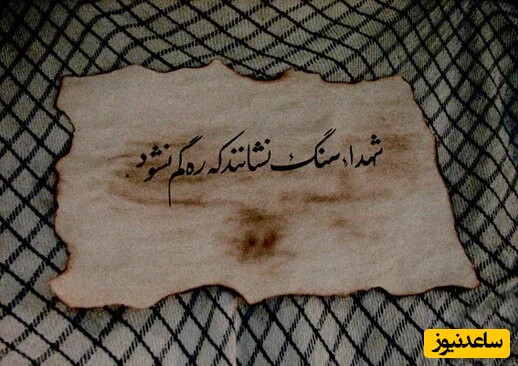 شهداء سنگ نشانند که ره گم نشود.
ساعدنیوز